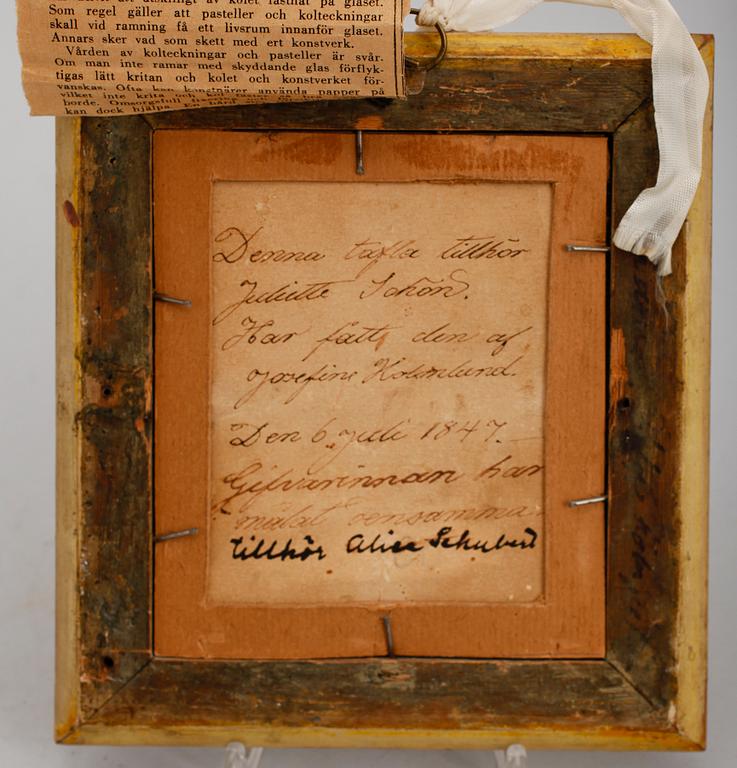 Som regel gäller att pasteller och kolteckningar
skall vid ramning få ett livsrum innanför glaset.
Annars sker vad som skett med ert konstverk.
Vården av kolteckningar och pasteller är svår.
Om man inte ramar med skyddande glas förflyk-
tigas lätt kritan och kolet och konstverket för-
vanskas. Ofta kan konstnärer använda papper på
vilket inte krita och kol fastnar
borde. Omsorgsfull
kan dock hjälpa. En hård
Denna tafla tillhör
Juliette Schön.
Har fått den af
Josefine Holmlund.
Den 6 Juli 1847.
Gifvarinnan har
målat densamma
tillhör Alice Schubert